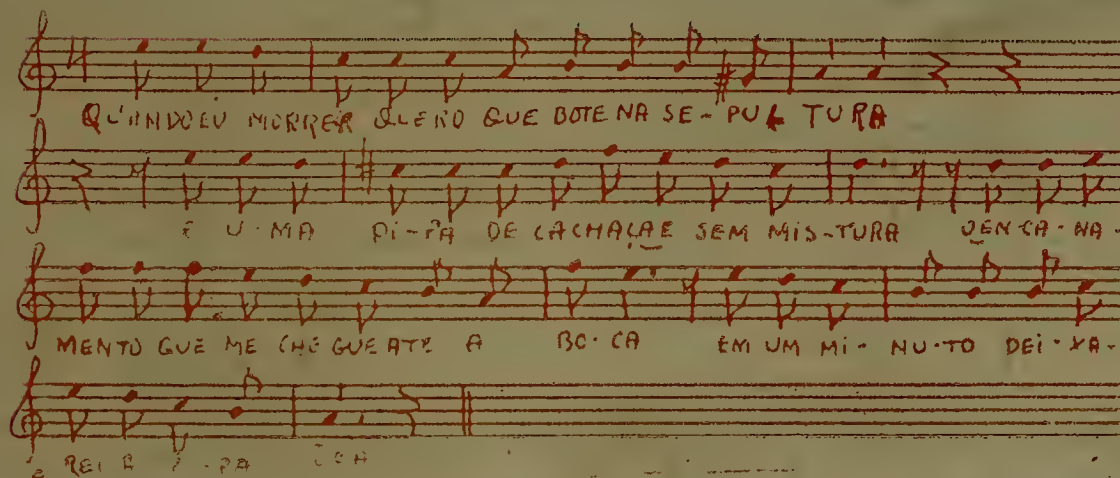 QUANDO EU MORRER QUERO QUE BOTE NA SE-PUL TURA
E U-MA PI-PA DE CACHAÇAE SEM MIS-TURA
MENTO QUE ME CHEGUE ATE A BO-CA EM UM MI-NU-TO DEI-XA-
REI A